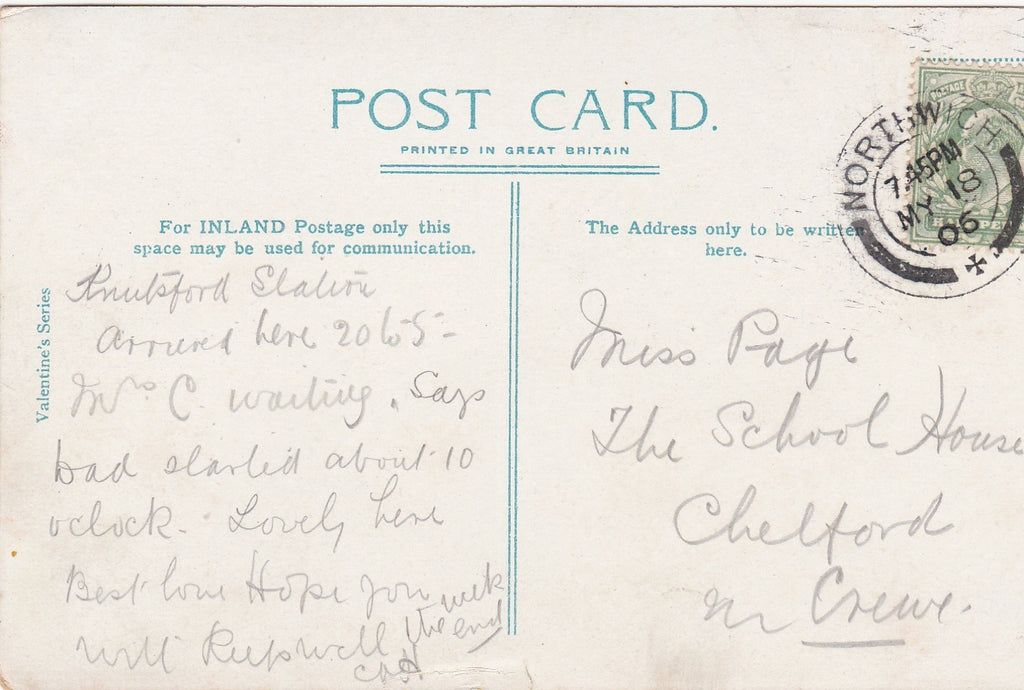 POST CARD.
PRINTED IN GREAT BRITAIN
For INLAND Postage only this
space may be used for communication.
The Address only to be written
here.
Valentine's Series
NORTHWICH
7.45PM
MY 18
06
Knutsford Station
Arrived here 20 to 5-
Mrs C. waiting. Says
had started about 10
o'clock. Lovely here
Best love Hope you
will keep well
the week end
Miss Page
The School House
Chelford
nr Crewe.